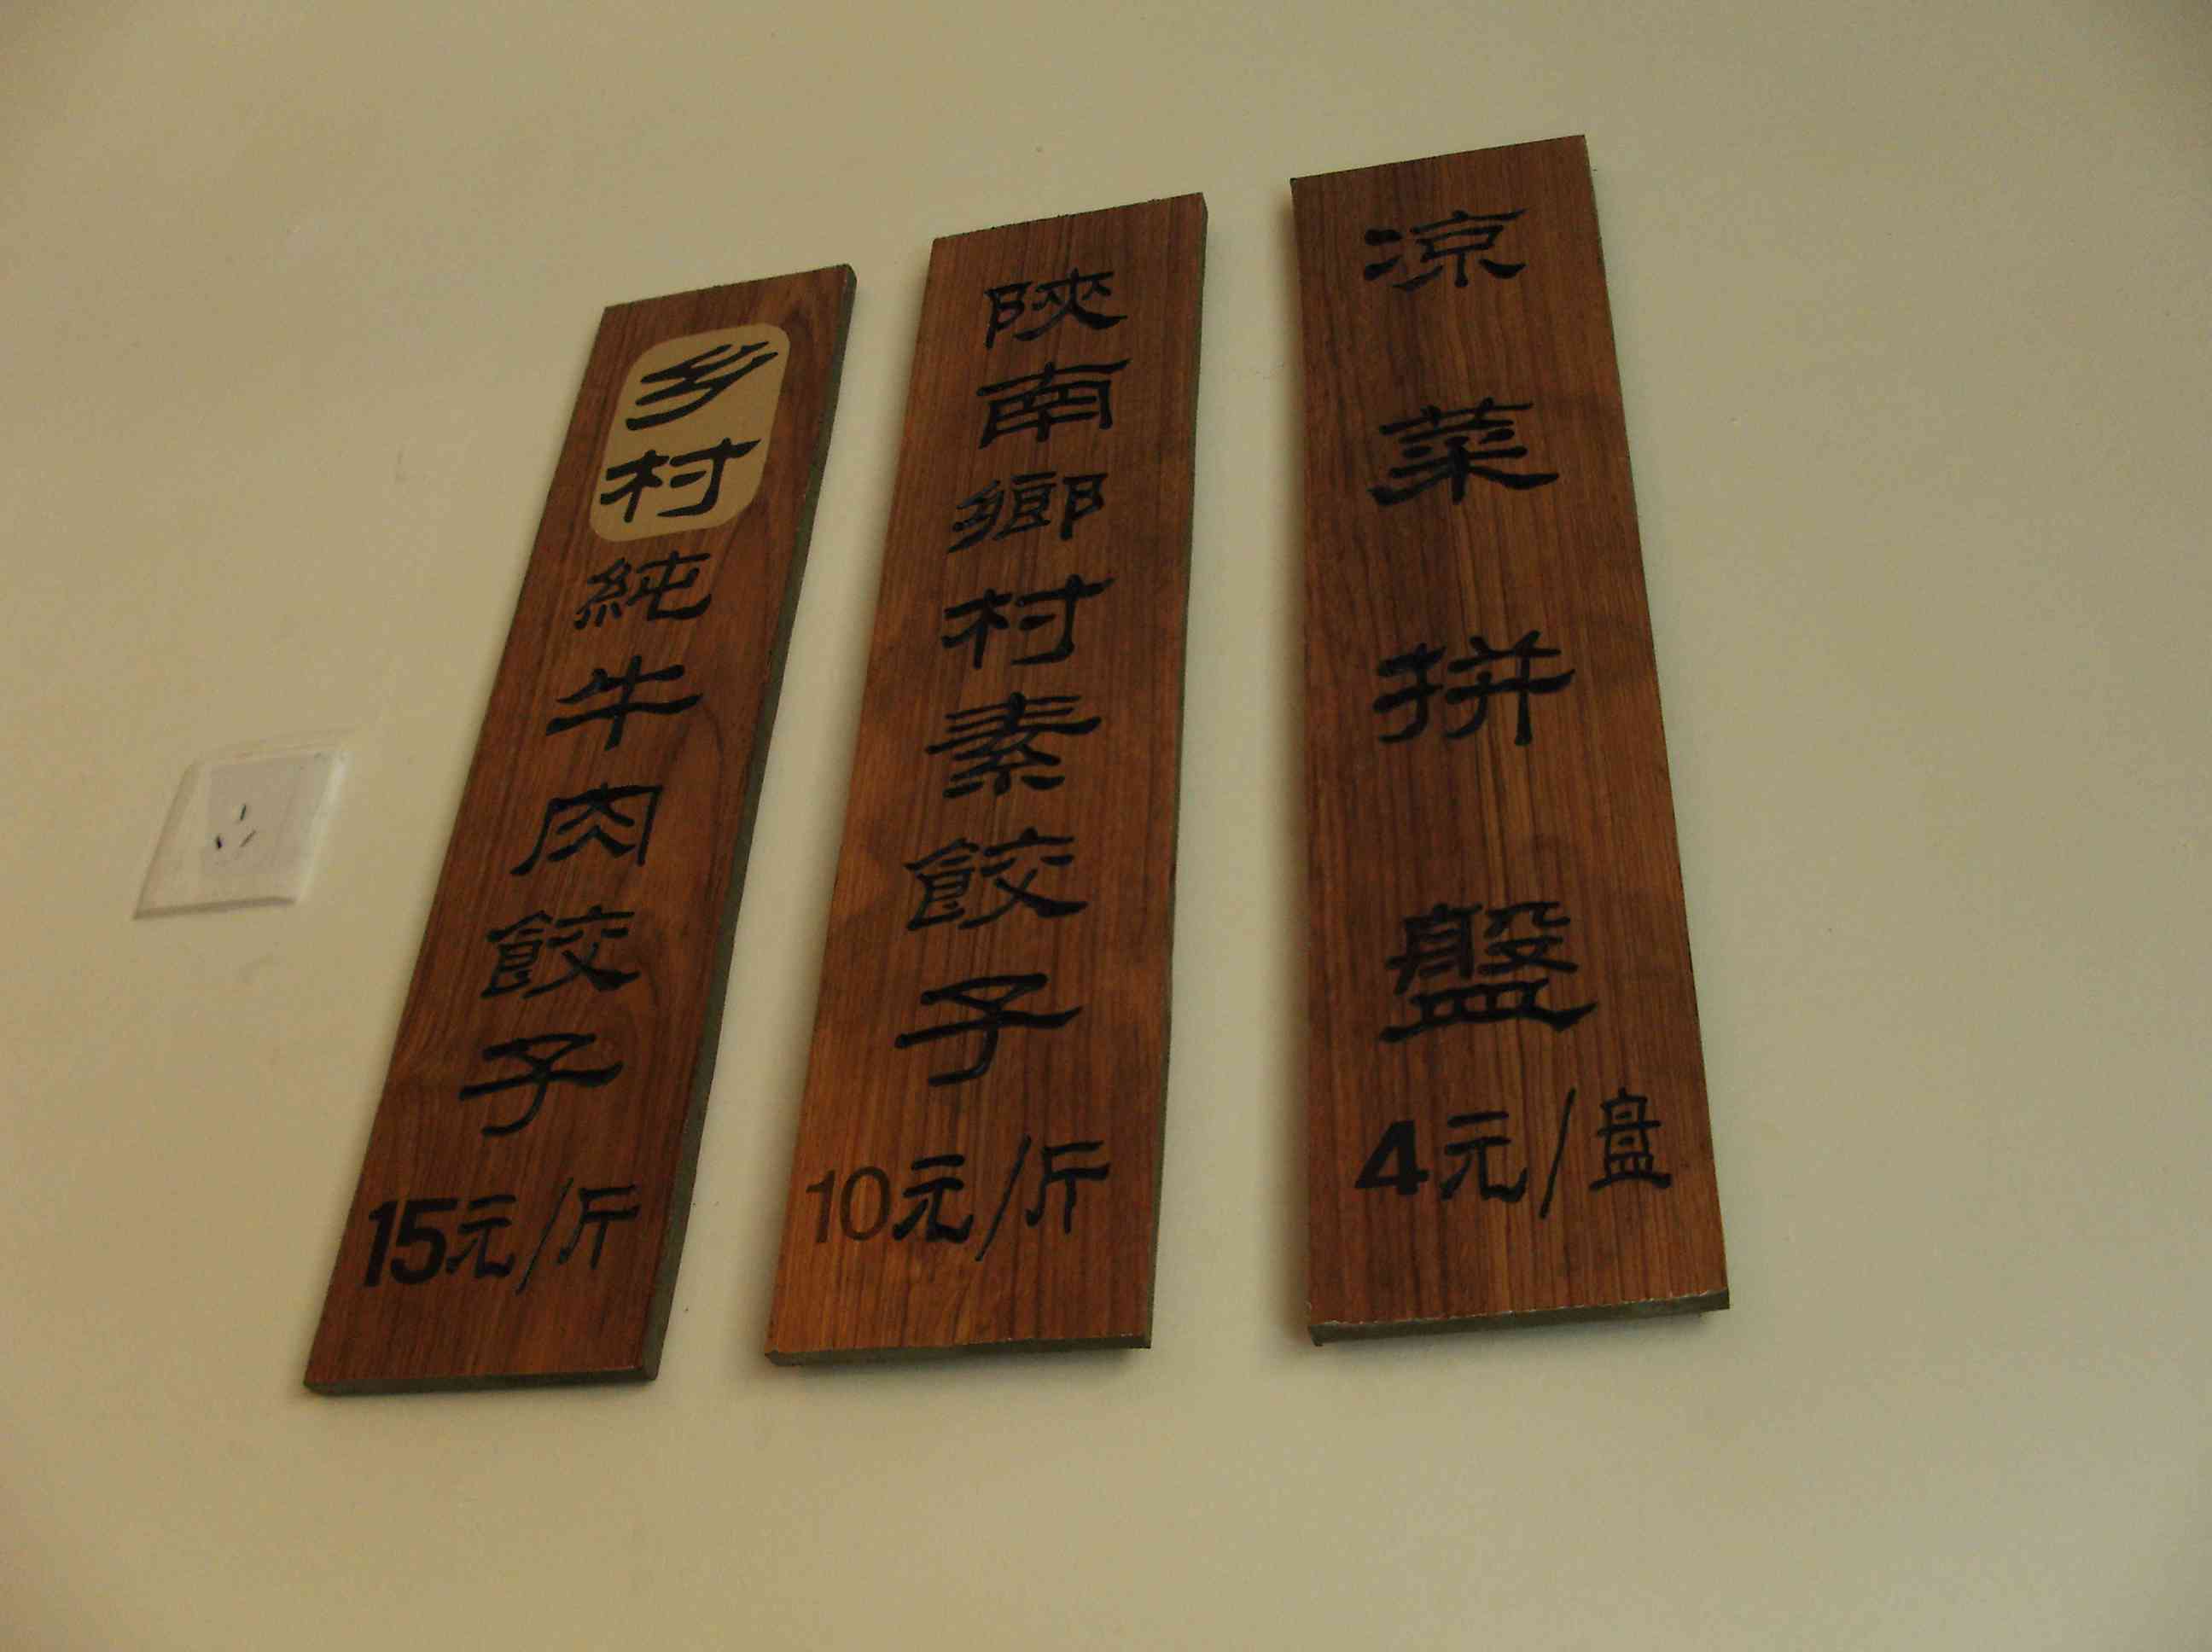 乡村純牛肉餃子
15元/斤
陝南鄉村素餃子
10元/斤
凉菜拼盤
4元/盘